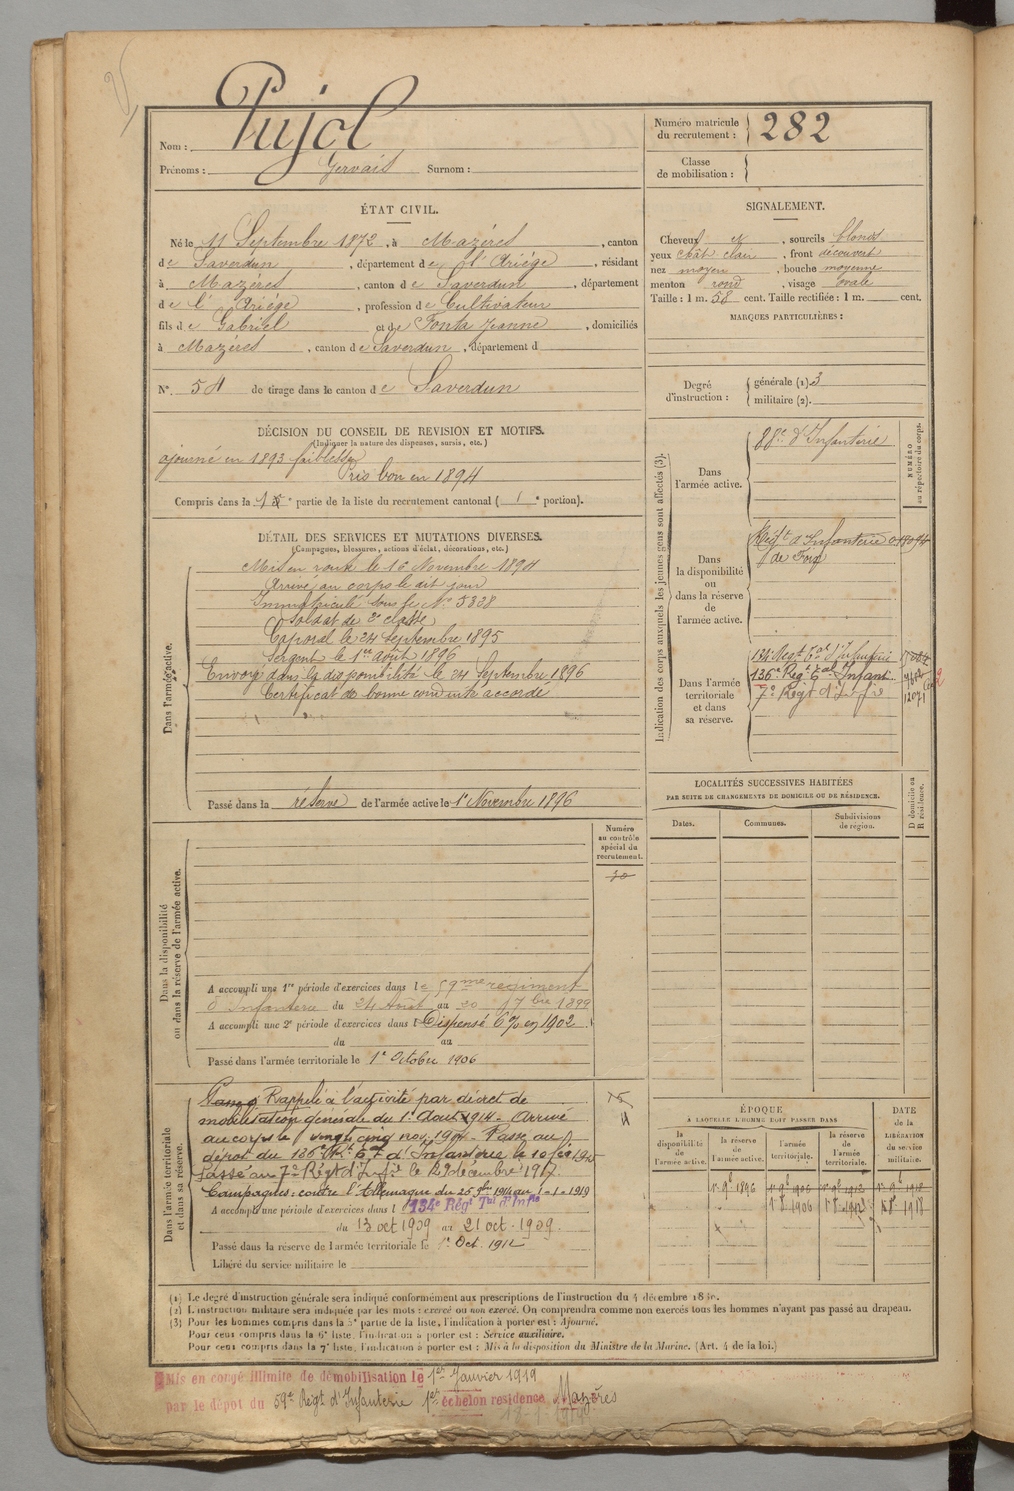 Nom : Pujol
Prénoms : Gervais Surnom :
Numéro matricule du recrutement : 282
Classe de mobilisation :
ÉTAT CIVIL.
Né le 11 Septembre 1872, à Mazères, canton
de Saverdun, département de l'Ariège, résidant
à Mazères, canton de Saverdun, département
de l'Ariège, profession de Cultivateur
fils de Gabriel et de Fonta Jeanne, domiciliés
à Mazères, canton de Saverdun, département d
N° 54 de tirage dans le canton de Saverdun
SIGNALEMENT.
Cheveux et, sourcils blonds
yeux chât clair, front découvert
nez moyen, bouche moyenne
menton rond, visage ovale
Taille : 1 m. 58 cent. Taille rectifiée : 1 m. cent.
MARQUES PARTICULIÈRES :
Degré d'instruction : générale (1) 3
militaire (2).
DÉCISION DU CONSEIL DE REVISION ET MOTIFS.
(Indiquer la nature des dispenses, sursis, etc.)
ajourné en 1893 faiblesse
Pris bon en 1894
Compris dans la 1e partie de la liste du recrutement cantonal ( 1e portion).
DÉTAIL DES SERVICES ET MUTATIONS DIVERSES.
(Campagnes, blessures, actions d'éclat, décorations, etc.)
Dans l'armée active.
Mis en route le 16 Novembre 1894
Arrivé au corps le dit jour
Immatriculé sous le N° 5338
Soldat de 2e classe
Caporal le 24 Septembre 1895
Sergent le 1er août 1896
Envoyé dans la disponibilité le 24 Septembre 1896
Certificat de bonne conduite accordé
Passé dans la réserve de l'armée active le 1er Novembre 1896
Indication des corps auxquels les jeunes gens sont affectés (3).
NUMÉRO au répertoire du corps.
Dans l'armée active.
88e d'Infanterie
Dans la disponibilité ou dans la réserve de l'armée active.
Régt d'Infanterie
de Foix
Dans l'armée territoriale et dans sa réserve.
134 Régt Tal d'Infanterie
136e Régt Tal Infant.
7e Régt d'Infie
12071
LOCALITÉS SUCCESSIVES HABITÉES
PAR SUITE DE CHANGEMENTS DE DOMICILE OU DE RÉSIDENCE.
Dates. Communes. Subdivisions de région. D domicile ou R résidence.
Numéro au contrôle spécial du recrutement.
Dans la disponibilité ou dans la réserve de l'armée active.
A accompli une 1re période d'exercices dans le 59me régiment
d'Infanterie du 24 Août au 20 7bre 1899
A accompli une 2e période d'exercices dans l Dispensé 6% en 1902
du au
Passé dans l'armée territoriale le 1er Octobre 1906
Dans l'armée territoriale et dans sa réserve.
Rappelé à l'activité par décret de
mobilisation générale du 1er Août 1914. Arrivé
au corps le vingt cinq nov. 1914. Passé au
dépôt du 136e Rt Tal d'Infanterie le 10 fév 1915
Passé au 7e Régt d'Infie le 29 décembre 1917.
Campagnes : contre l'Allemagne du 25 9bre 1914 au 1-1-1919
A accompli une période d'exercices dans l 134e Régt Tal d'Infie
du 13 oct 1909 au 21 oct. 1909.
Passé dans la réserve de l'armée territoriale le 1er Oct. 1912
Libéré du service militaire le
ÉPOQUE
À LAQUELLE L'HOMME DOIT PASSER DANS
la disponibilité de l'armée active.
la réserve de l'armée active.
l'armée territoriale.
la réserve de l'armée territoriale.
DATE de la LIBÉRATION du service militaire.
1er 9b 1896 1er 9b 1906 1er 9b 1912 1er 9b 1918
1er 8 1906 1er 8 1912 1er 8 1918
(1) Le degré d'instruction générale sera indiqué conformément aux prescriptions de l'instruction du 4 décembre 18
(2) L'instruction militaire sera indiquée par les mots : exercé ou non exercé. On comprendra comme non exercés tous les hommes n'ayant pas passé au drapeau.
(3) Pour les hommes compris dans la 5e partie de la liste, l'indication à porter est : Ajourné.
Pour ceux compris dans la 6e liste, l'indication à porter est : Service auxiliaire.
Pour ceux compris dans la 7e liste, l'indication à porter est : Mis à la disposition du Ministre de la Marine. (Art. 4 de la loi.)
Mis en congé illimité de démobilisation le 1er Janvier 1919
par le dépôt du 59e Régt d'Infanterie 1er échelon résidence Mazères